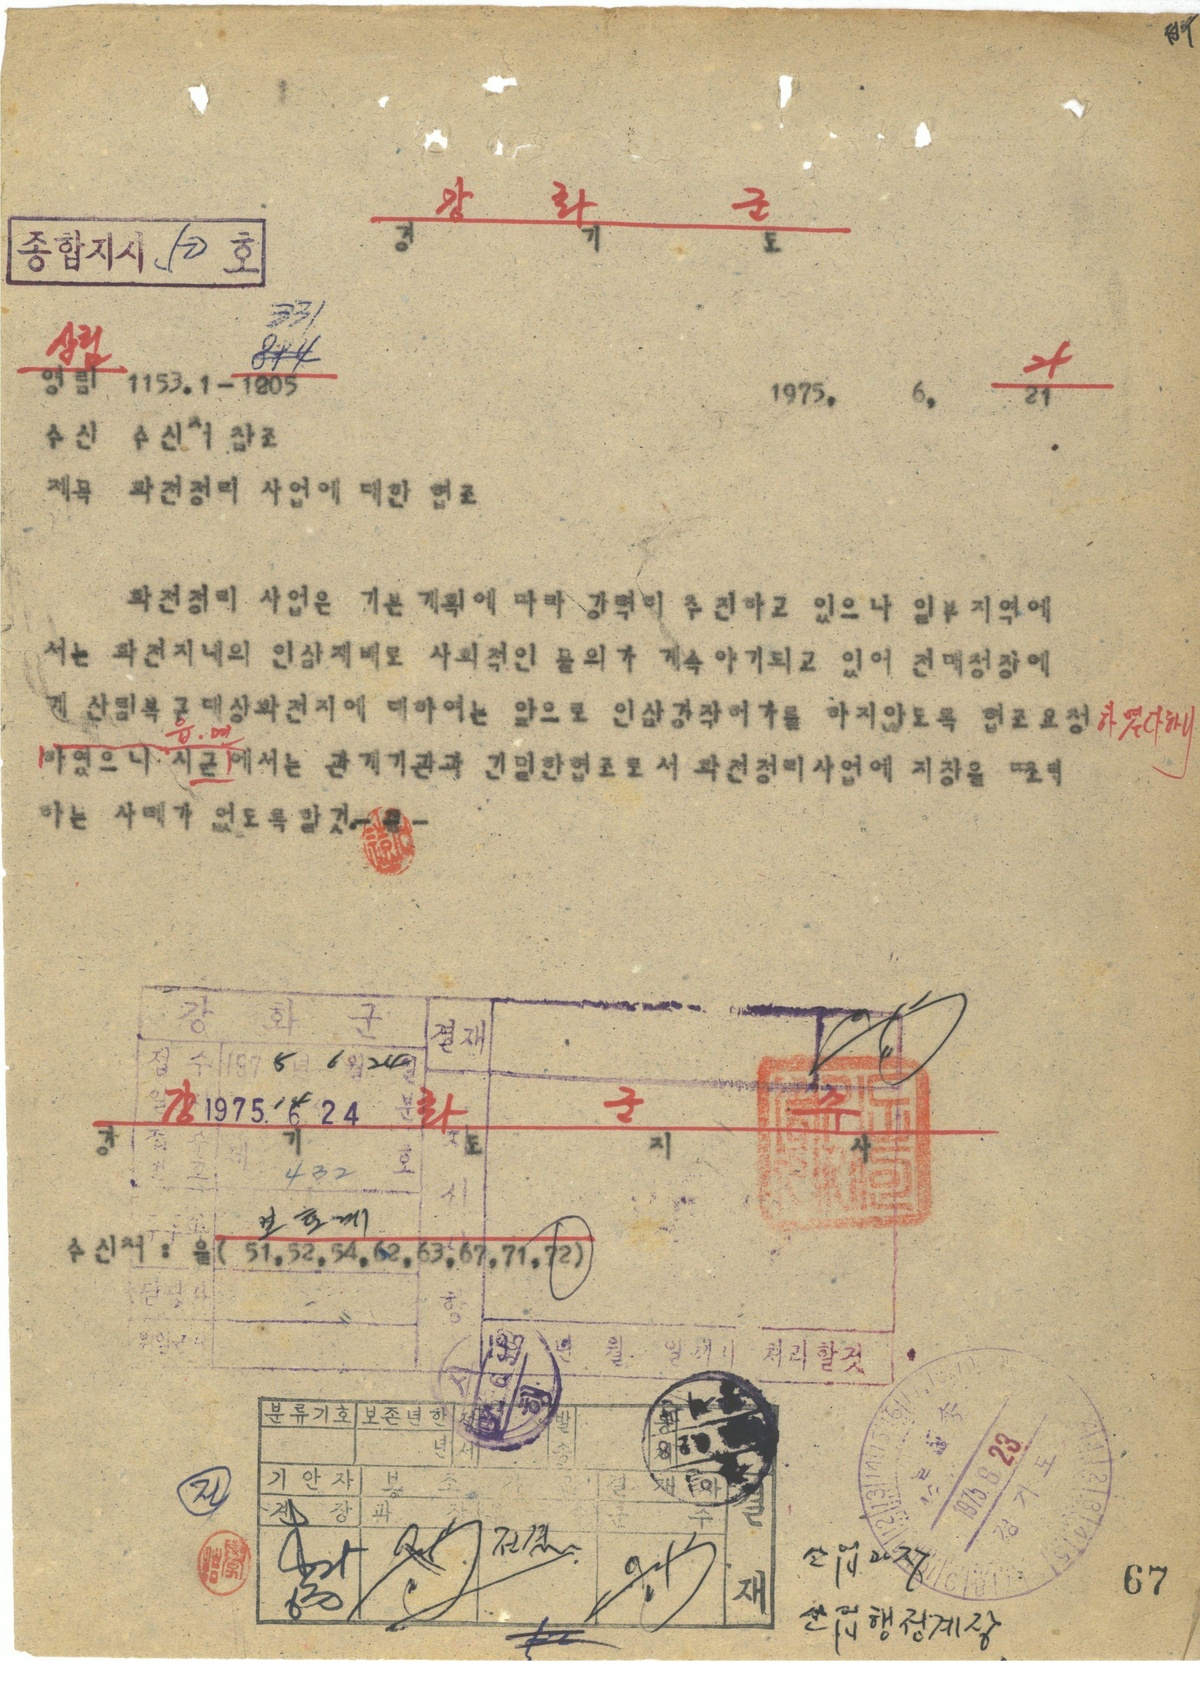 강 화 군
경 기 도
종합지시 50 호
산림 331
844
영림 1153.1-1205 1975. 6. 21
수신 수신처 참조
제목 화전정리 사업에 대한 협조
화전정리 사업은 기본계획에 따라 강력히 추진하고 있으나 일부지역에
서는 화전지내의 인삼재배로 사회적인 물의가 계속야기되고 있어 전매청장에
게 산림복구대상화전지에 대하여는 앞으로 인삼경작허가를 하지않도록 협조요청 하였다하니
읍.면
하였으니 시군에서는 관계기관과 긴밀한협조로서 화전정리사업에 지장을 초래
하는 사례가 없도록할것.-끝-
강 화 군 결재
접 수 197 5년 6월 24일
강 1975. 6 24 화 군 수
경 기 도 지 사
제 432 호
지시
보호계
수신처 : 을( 51,52,54,62,63,67,71,72)
항
년 월 일까지 처리할것
분류기호 보존년한
년
기안자
계 장 과 장 군 수
전결
결재
전
1975.6.23
경기도
산업과장
산업행정계장
67